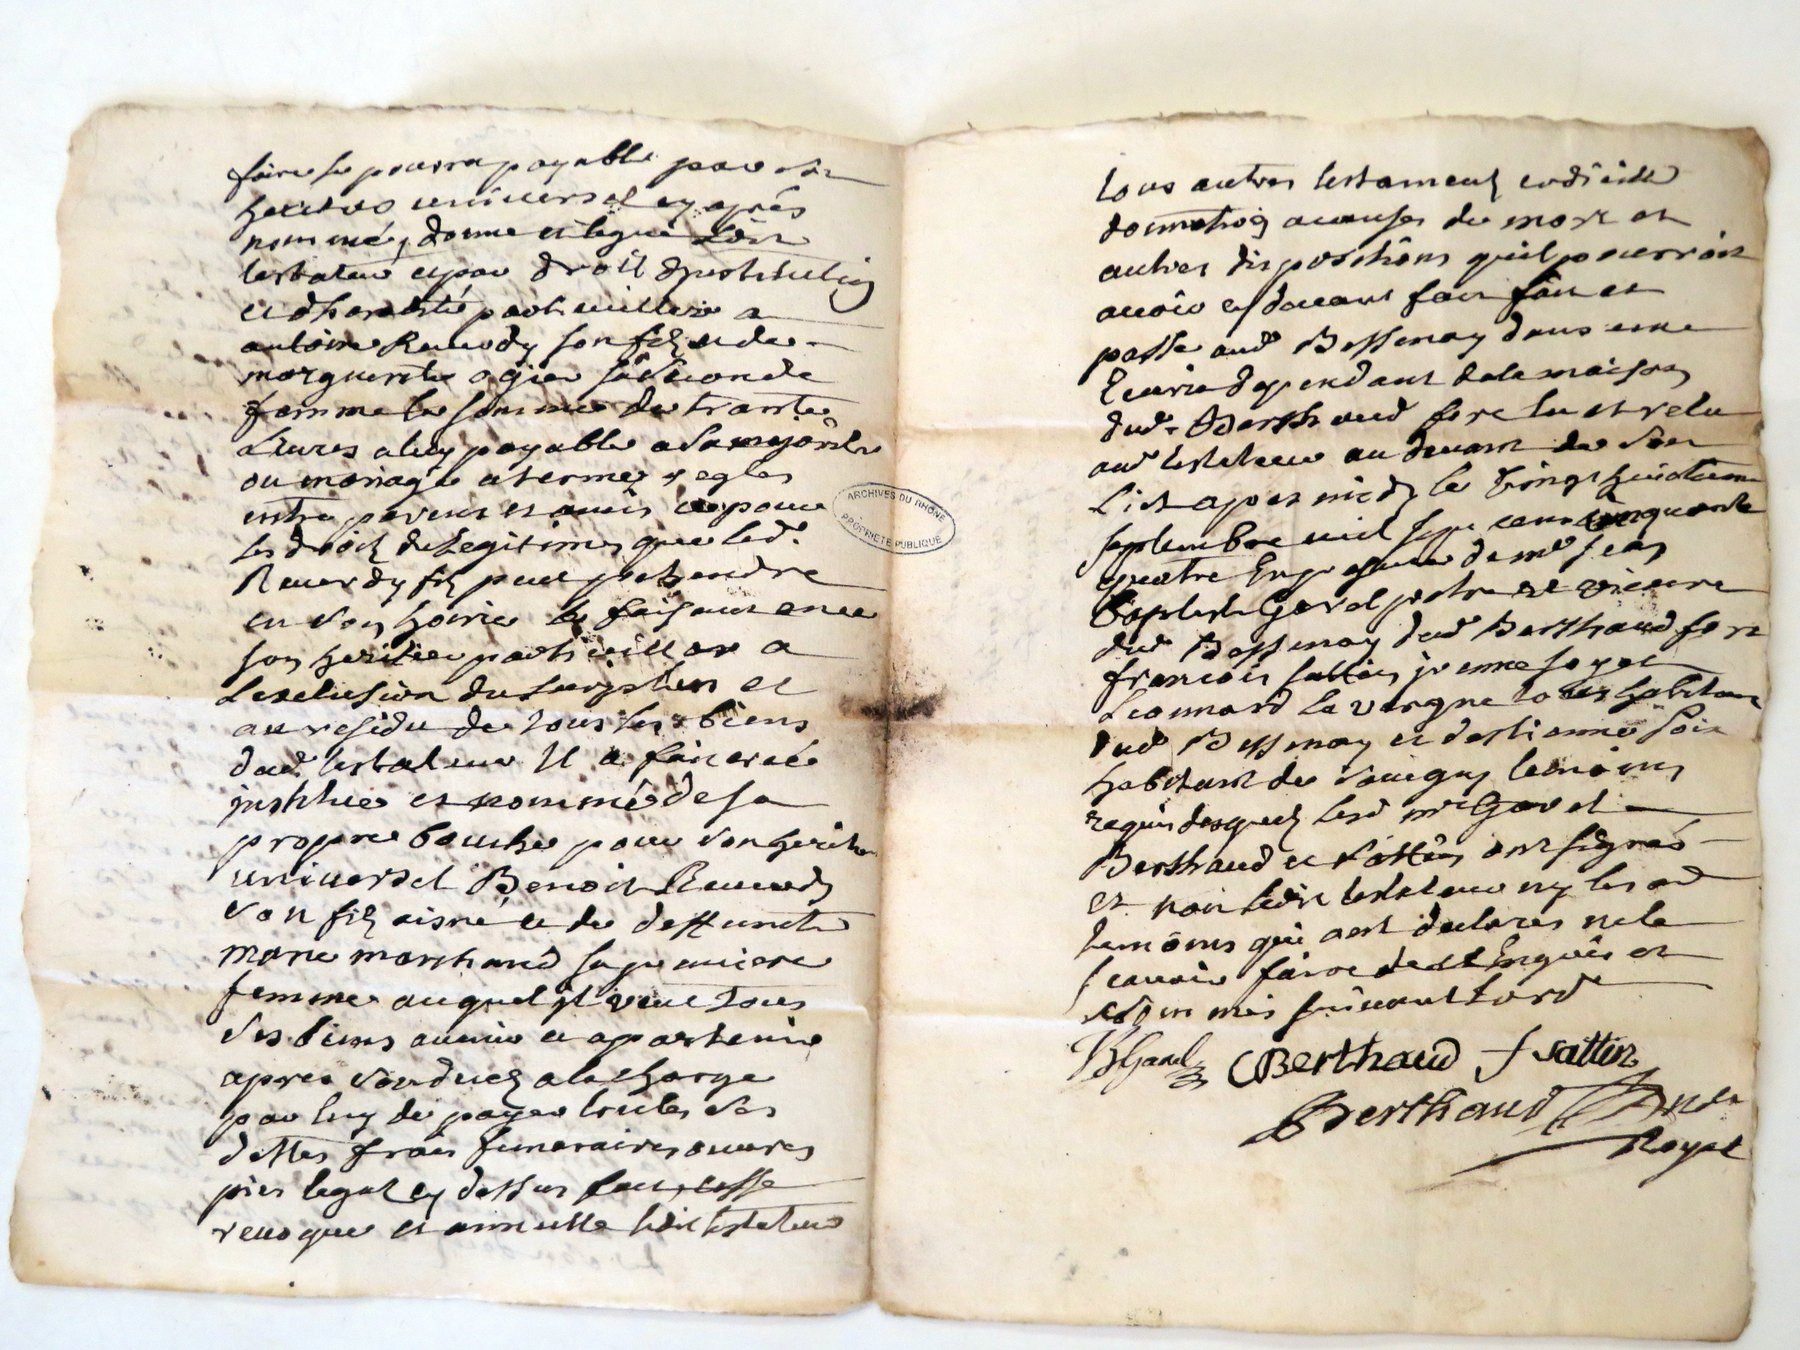 faire se pourra payable par son
heritier universel cy après
nommé, donne et legue ledit
testateur et par droit d'institution
et dheredité particuliere a
antoine Reverdy son fils et de
marguerite ogier sa seconde
femme la somme de trante
Livres a luy payable a sa majorité
ou mariage a termes regles
entre parens et amis et pour
les droits de legitimes que led.
Reverdy fils peut pretendre
en son hoirie le faisant en ce
son heritier particulier a
Lexclusion du surplus et
au residu de tous les biens
dud. testateur Il a fait creé
institue et nommé de sa
propre bouche pour son heritier
universel Benoit Reverdy
son fils aisné et de deffuncte
marie marchand sa premiere
femme auquel il veut tous
ses biens avenir et apartenir
apres son deces a la charge
par luy de payer toutes ses
dettes frais funeraires œuvres
pies legat cy dessus casse
revoque et annulle ledit testateur
ARCHIVES DU RHÔNE
PROPRIETE PUBLIQUE
tous autres testaments codicille
donnation a causes de mort et
autres dispositions quil pourroit
avoir cy devant fait fait et
passé aud Bessenay dans une
Ecurie dependant de la maison
dud. Berthaud lu et relu
aud testateur au devant de son
Lict apres midy le vingt huictieme
septembre mil sept cent cinquante
quatre En presence de mre Jean
baptiste Gavel pretre et vicaire
dud Bessenay dud Berthaud
francois sattin jeune
Leonnard La vergne tous habitans
dud Bessenay et destienne
habitant de Savigny temoins
requis desquels lesd mre Gavel
Berthaud et sattin ont signés
et non ledit testateur ny les aud
temoins qui ont declarés ne le
scavoir faire de ce Enquis et
suivant Lord
Gavel Berthaud f sattin
Berthaud
Royal